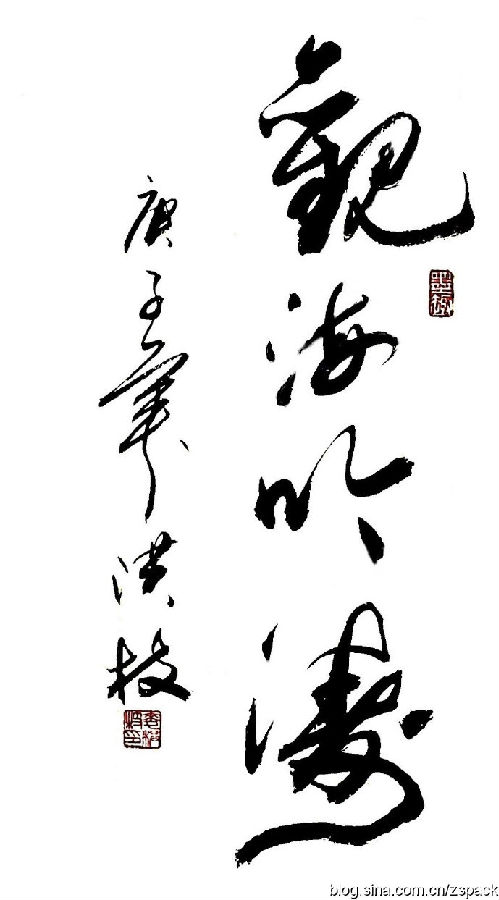 觀海听濤
庚子 洪枝
blog.sina.com.cn/zspack